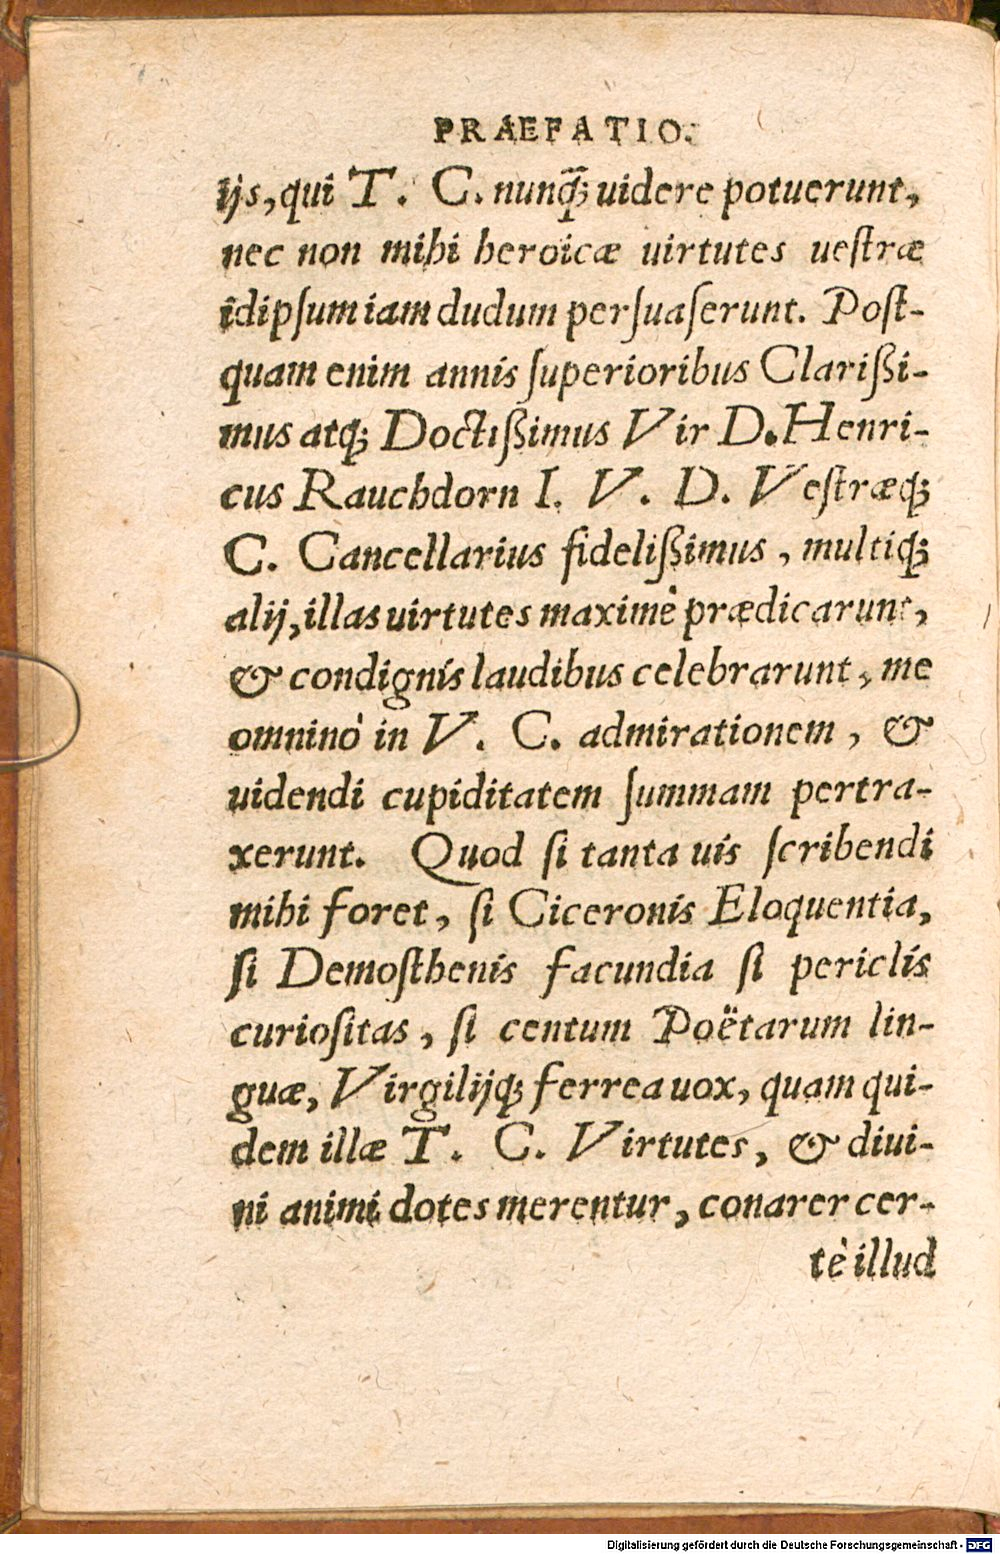 PRAEFATIO.
ijs, qui T. C. nunq̃ꝫ uidere potuerunt,
nec non mihi heroicæ uirtutes ueſtræ
idipſum iam dudum perſuaſerunt. Poſt-
quam enim annis ſuperioribus Clarißi-
mus atqꝫ Doctißimus Vir D. Henri-
cus Rauchdorn I. V. D. Veſtræqꝫ
C. Cancellarius fidelißimus, multiqꝫ
alij, illas uirtutes maximè prædicarunt,
& condignis laudibus celebrarunt, me
omninò in V. C. admirationem, &
uidendi cupiditatem ſummam pertra-
xerunt. Quod ſi tanta uis ſcribendi
mihi foret, ſi Ciceronis Eloquentia,
ſi Demoſthenis facundia ſi periclis
curioſitas, ſi centum Poëtarum lin-
guæ, Virgilijqꝫ ferrea uox, quam qui-
dem illæ T. C. Virtutes, & diui-
ni animi dotes merentur, conarer cer-
tè illud
Digitalisierung gefördert durch die Deutsche Forschungsgemeinschaft - DFG